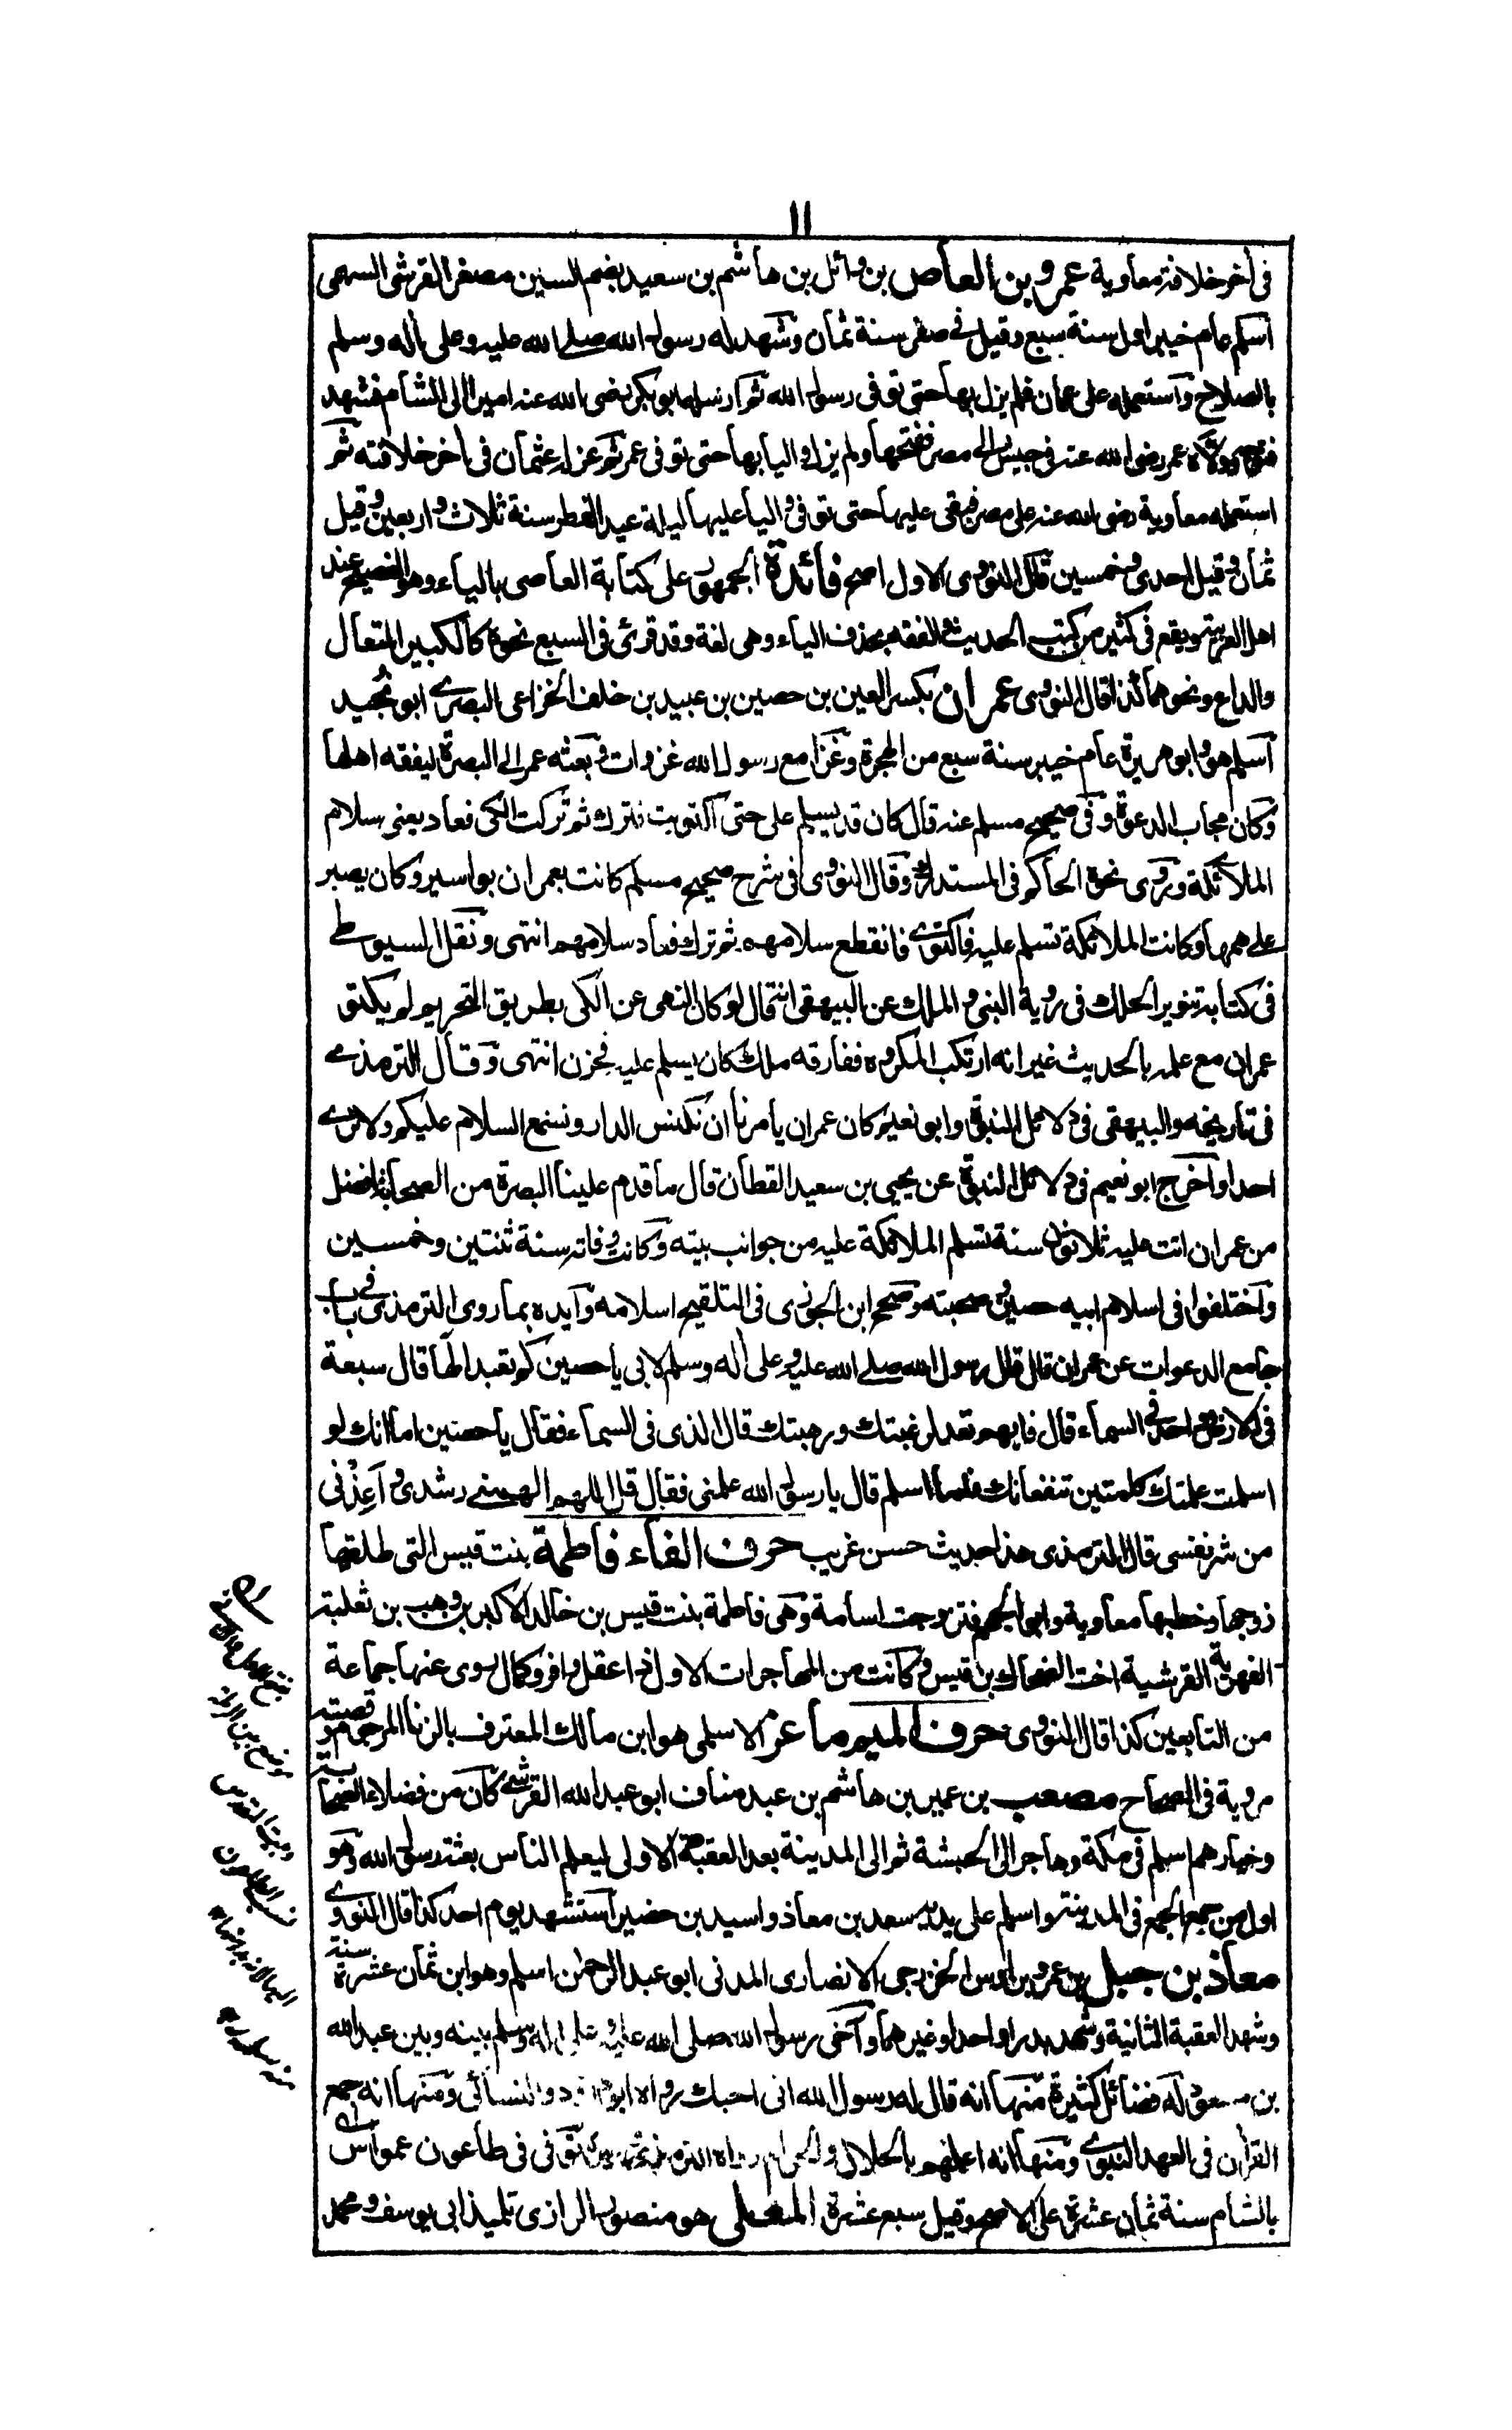 ١١
في أخر خلافة معاوية عمرو بن العاص بن وائل بن هاشم بن سعيد بضم السين مصغر القرشي السهمي
أسلم عام خيبر اول سنة سبع وقيل في صفر سنة ثمان وشهد له رسول الله صلى الله عليه وعلى أله وسلم
بالصلاح واستعمله على عمان فلم يزل بها حتى توفى رسول الله ثم ارسله ابو بكر رضى الله عنه اميرا الى الشام فشهد
فتوحه وولاه عمر رضى الله عنه في جيش الى مصر ففتحها ولم يزل واليا بها حتى توفى عمر ثم عزله عثمان في أخر خلافته ثم
استعمله معاوية رضى الله عنه على مصر فبقى عليها حتى توفى واليا عليها ليلة عيد الفطر سنة ثلاث واربعين وقيل
ثمان وقيل احدى وخمسين قال النووى الاول اصح فائدة الجمهور على كتابة العاصى بالياء وهو الفصيح عند
اهل العربية ويقع في كثير من كتب الحديث والفقه بحذف الياء وهى لغة وقد قرئ في السبع نحوه كالكبير المتعال
والداع ونحوهما كذا قال النووى عمران بكسر العين بن حصين بن عبيد بن خلف الخزاعى البصرى ابو نُجيد
أسلم هو وابو هريرة عام خيبر سنة سبع من الهجرة وغزا مع رسول الله غزوات وبعثه عمر الى البصرة ليفقه اهلها
وكان مجاب الدعوة وفى صحيح مسلم عنه قال كان قد يسلم على حتى اكتويت فترك ثم تركت الكى فعاد يعنى سلام
الملائكة وروى نحوه الحاكم في المستدرك وقال النووى في شرح صحيح مسلم كانت بعمران بواسير وكان يصبر
على همها وكانت الملائكة تسلم عليه فاكتوى فانقطع سلامهم ثم ترك فعاد سلامهم انتهى ونقل السيوطى
في كتابه تنوير الحلك في روية النبى والملك عن البيهقى انه قال لو كان النهى عن الكى بطريق التحريم لم يكتو
عمران مع علمه بالحديث غير انه ارتكب المكروه ففارقه ملك كان يسلم عليه فحزن انتهى وقال الترمذى
في تأريخه والبيهقى في دلائل النبوة وابو نعيم كان عمران يأمرنا ان نكنس الدار ونسمع السلام عليكم ولا نرى
احدا واخرج ابو نعيم في دلائل النبوة عن يحيى بن سعيد القطان قال ما قدم علينا البصرة من الصحابة افضل
من عمران اتت عليه ثلاثون سنة تسلم الملائكة عليه من جوانب بيته وكانت وفاته سنة ثنتين وخمسين
واختلفوا في اسلام ابيه حصين وصحبته وصحح ابن الجوزى في التلقيح اسلامه وأيده بما روى الترمذى في باب
جامع الدعوات عن عمران قال قال رسول الله صلى الله عليه وعلى أله وسلم لابى يا حصين كم تعبد الها قال سبعة
في الارض واحد في السماء قال فايهم تعد لرغبتك ورهبتك قال الذى في السماء فقال يا حصين اما انك لو
اسلمت علمتك كلمتين تنفعانك فلما اسلم قال يا رسول الله علمنى فقال قل اللهم الهمنى رشدى وأعِذْنى
من شر نفسى قال الترمذى هذا حديث حسن غريب حرف الفاء فاطمة بنت قيس التى طلقها
زوجها وخطبها معاوية وابو الجهم فتزوجت اسامة وهى فاطمة بنت قيس بن خالد الاكبر بن وهب بن ثعلبة
الفهرية القرشية اخت الضحاك بن قيس وكانت من المهاجرات الاول ذا عقل وافر وكمال روى عنها جماعة
من التابعين كذا قال النووى حرف الميم ماعز الاسلمى هو ابن مالك المعترف بالزنا المرجوم وقصته
مروية في الصحاح مصعب بن عمير بن هاشم بن عبد مناف ابو عبد الله القرشى كان من فضلاء الصحابة
وخيارهم اسلم في مكة وهاجر الى الحبشة ثم الى المدينة بعد العقبة الاولى ليعلم الناس بعثه رسول الله وهو
اول من جمع الجمع في المدينة واسلم على يديه سعد بن معاذ واسيد بن حضير استشهد يوم احد كذا قال النووى
معاذ بن جبل بن عمرو بن اوس الخزرجى الانصارى المدنى ابو عبد الرحمن اسلم وهو ابن ثمان عشرة سنة
وشهد العقبة الثانية وشهد بدرا واحدا وغيرهما وآخى رسول الله صلى الله عليه وعلى أله وسلم بينه وبين عبد الله
بن مسعود له فضائل كثيرة منها انه قال له رسول الله انى احبك رواه ابو داود والنسائى ومنها انه جمع
القرأن في العهد النبوى ومنها انه اعلمهم بالحلال والحرام رواه الترمذى توفى في طاعون عمواس
بالشام سنة ثمان عشرة على الاصح وقيل سبع عشرة المعلى هو منصور الرازى تلميذ ابى يوسف ومحمد